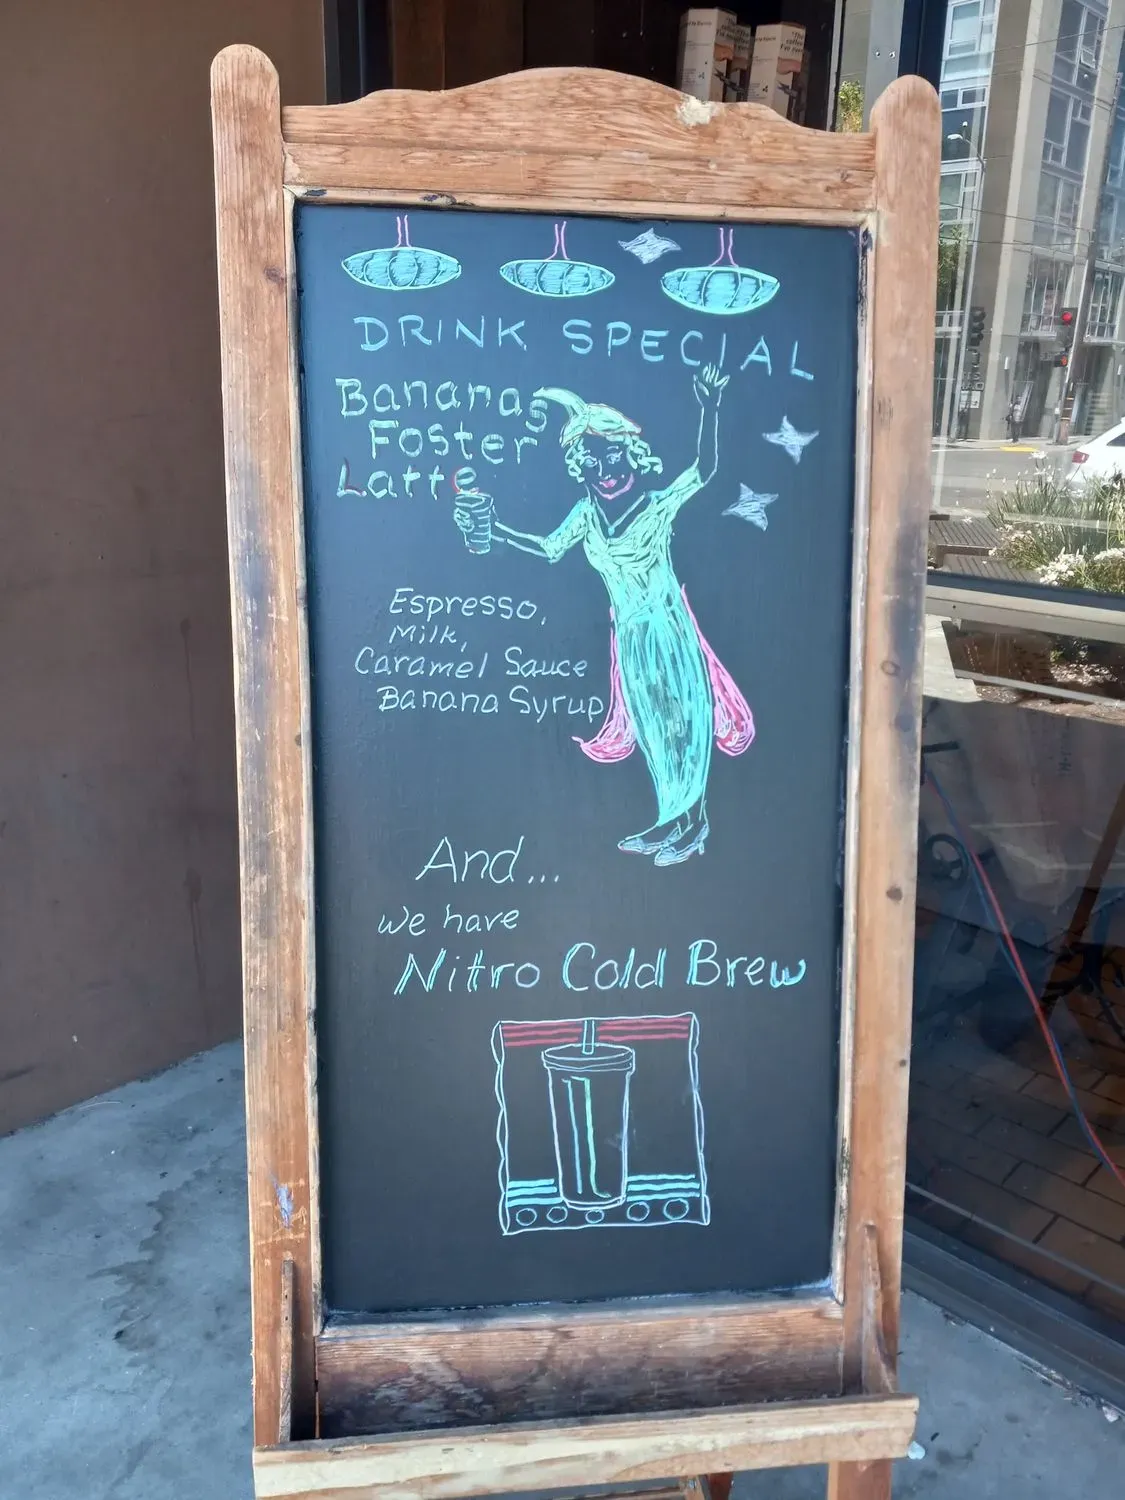 DRINK SPECIAL
Bananas
Foster
Latte
Espresso,
Milk,
Caramel Sauce
Banana Syrup
And...
we have
Nitro Cold Brew